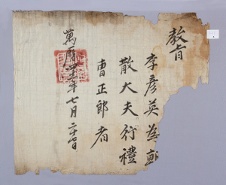 教旨
李彦英為
散大夫行禮
曹正郎者
萬曆 年七月二十七日